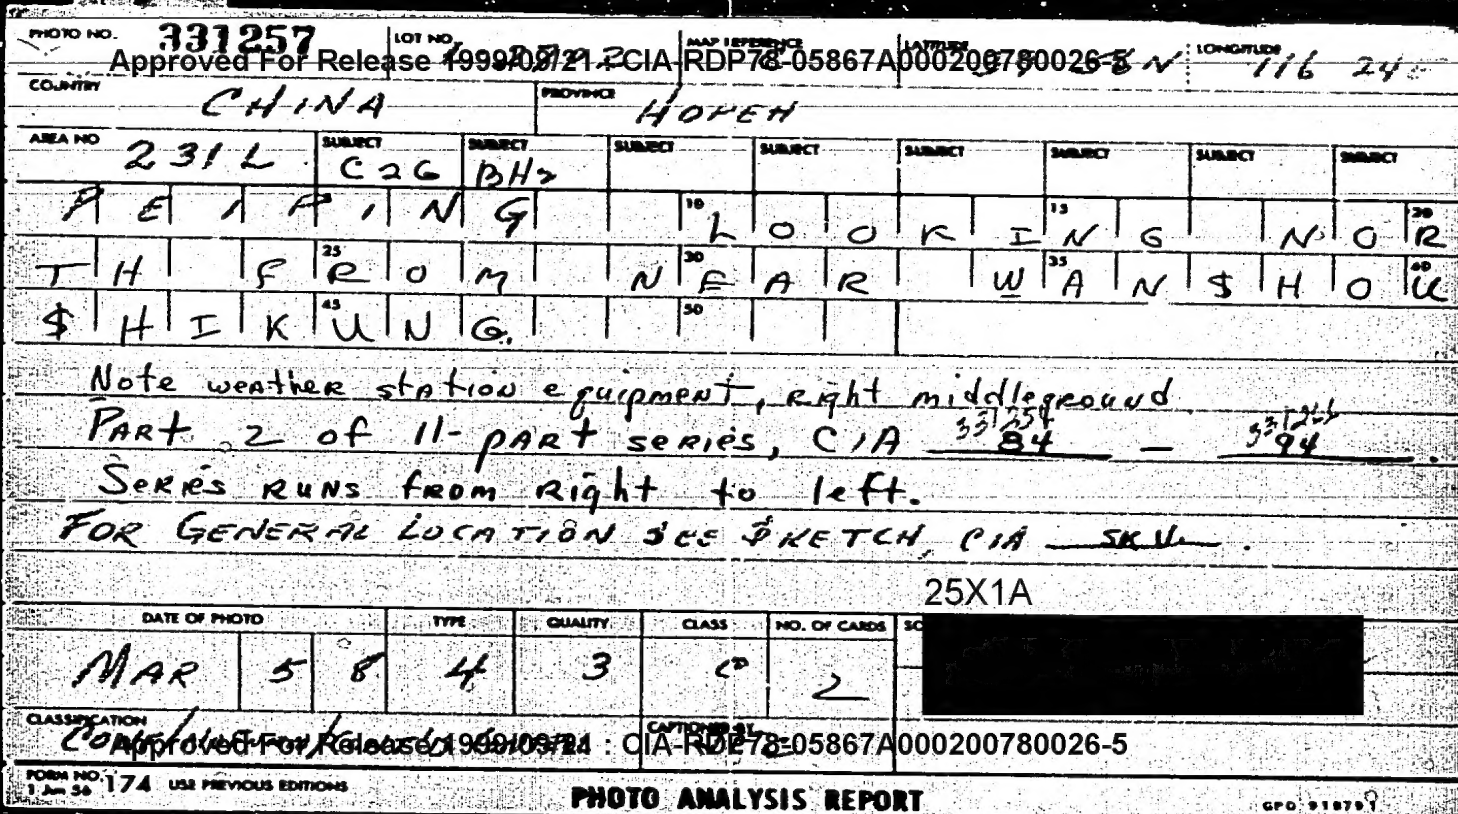 PHOTO NO. 331257 LOT NO. MAP REFERENCE LATITUDE N LONGITUDE 116 24
Approved For Release 1999/09/21 : CIA-RDP78-05867A000200780026-5
COUNTRY CHINA PROVINCE HOPEH
AREA NO 231L SUBJECT C26 SUBJECT BH2 SUBJECT SUBJECT SUBJECT SUBJECT SUBJECT SUBJECT
PEIPING 10 LOOKING 15 NOR 20
TH FROM 25 NEAR 30 WAN$HOU 35 40
$HIKUNG. 45 50
Note weather station equipment, Right middleground
Part 2 of 11-part series, CIA 331254 84 — 94.
Series runs from Right to left.
FOR GENERAL LOCATION SEE $KETCH, CIA
25X1A
DATE OF PHOTO TYPE QUALITY CLASS NO. OF CARDS
MAR 58 4 3 C 2
CLASSIFICATION CAPTIONED BY
Approved For Release 1999/09/21 : CIA-RDP78-05867A000200780026-5
FORM NO. 174 USE PREVIOUS EDITIONS
1 Jun 56
PHOTO ANALYSIS REPORT
GPO